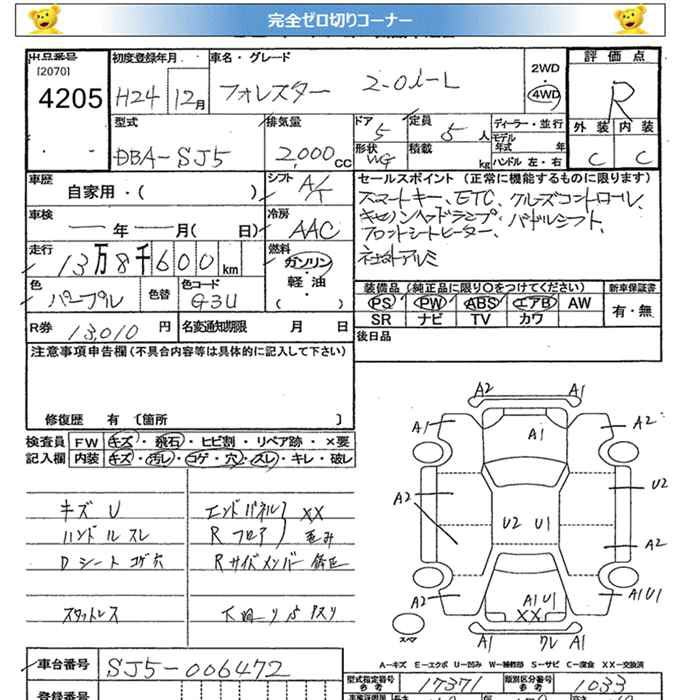 完全ゼロ切りコーナー
出品番号 初度登録年月 車名・グレード 2WD 評価点
[2070]
4205 H24 12月 フォレスター 2.0i-L ・ 4WD R
型式 排気量 ドア 5 定員 5人 ディーラー・並行 外装 内装
モデル年式 年
DBA-SJ5 2,000cc 形状 WG 積載 kg ハンドル 左・右 C C
車歴 自家用・( ) シフト A/T セールスポイント (正常に機能するものに限ります)
スマートキー、ETC、クルーズコントロール、
車検 年 月( 日) 冷房 AAC キセノンヘッドランプ、パドルシフト、
フロントシートヒーター、
走行 13万8千600km 燃料 ガソリン・軽油・( ) 社外アルミ
色 パープル 色替 色コード G3U 装備品 (純正品に限り○をつけてください) 新車保証書
PS PW ABS エアB AW 有・無
SR ナビ TV カワ
R券 13,010円 名変通知期限 月 日 後日品
注意事項申告欄(不具合内容等は具体的に記入して下さい)
修復歴 有 〔箇所 〕
検査員 FW キズ・飛石・ヒビ割・リペア跡・×要
記入欄 内装 キズ・汚レ・コゲ・穴・スレ・キレ・破レ
キズ U エンドパネル XX
ハンドルスレ Rフロア 歪み
Dシート コゲ穴 Rサイドメンバー 修正
スタットレス 下廻り
A2 A1
A1 A1 A2
A2 U2
U2 U1
A2
A2 A1U1 A1U1
XX
スペア A1 ワレ A1
A－キズ E－エクボ U－凹み W－補修跡 S－サビ C－腐食 XX－交換済
車台番号 SJ5-006472
型式指定番号 参考 17371 類別区分番号 参考 1033
登録番号